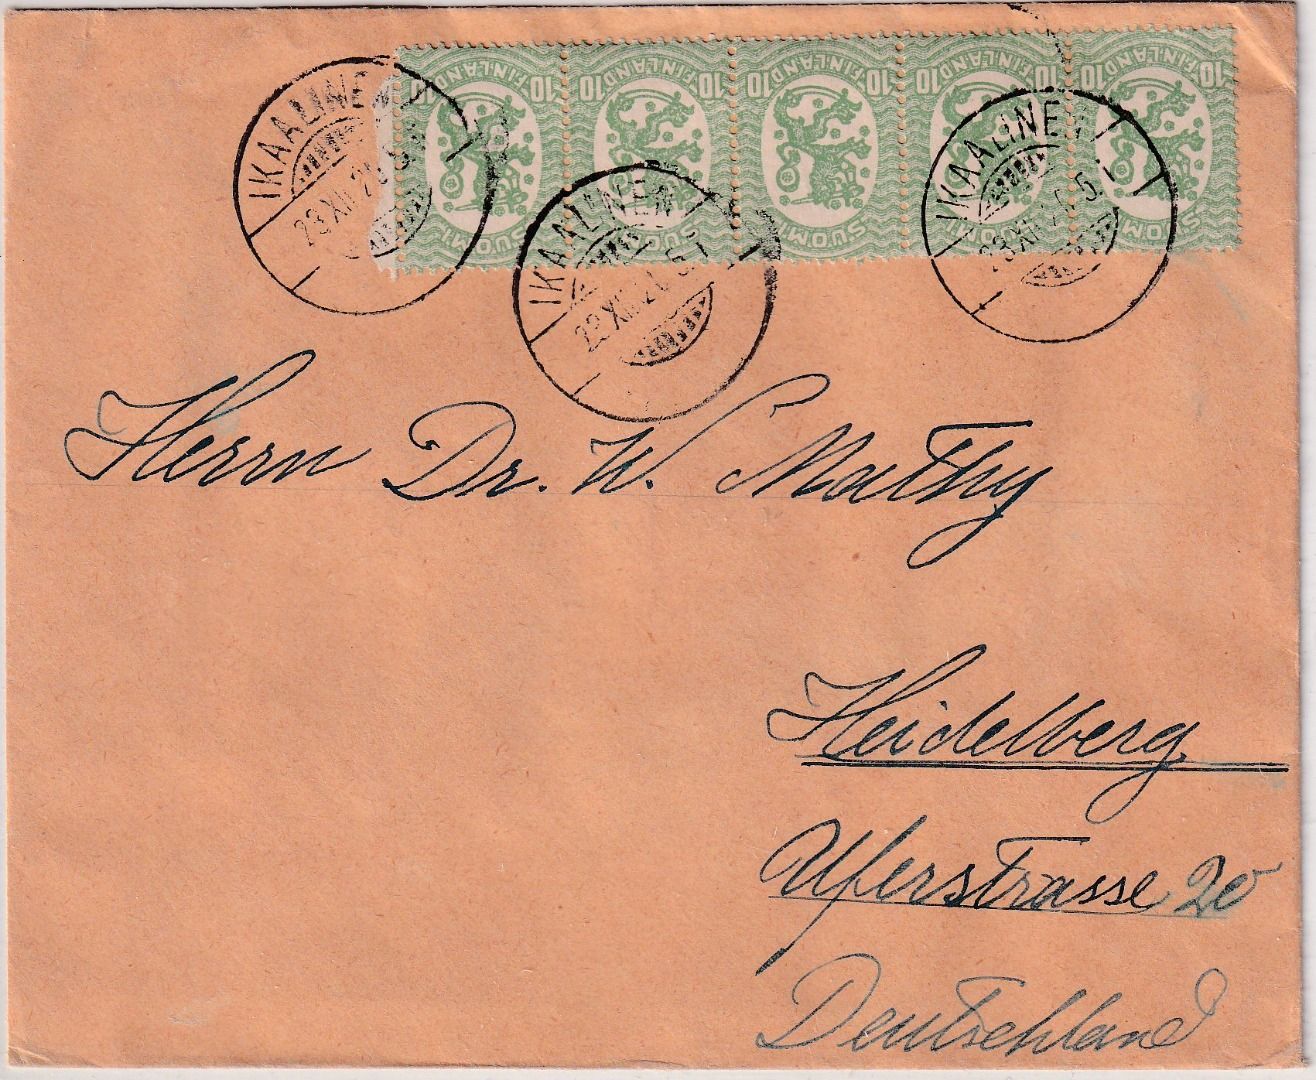 10 FINLAND 10 FINLAND 10 FINLAND 10 FINLAND 10
SUOMI SUOMI SUOMI SUOMI SUOMI
IKAALINEN
23.XII.20.5
IKAALINEN
IKAALINEN
Herrn Dr. W. Mathy
Heidelberg
Uferstrasse 20
Deutschland